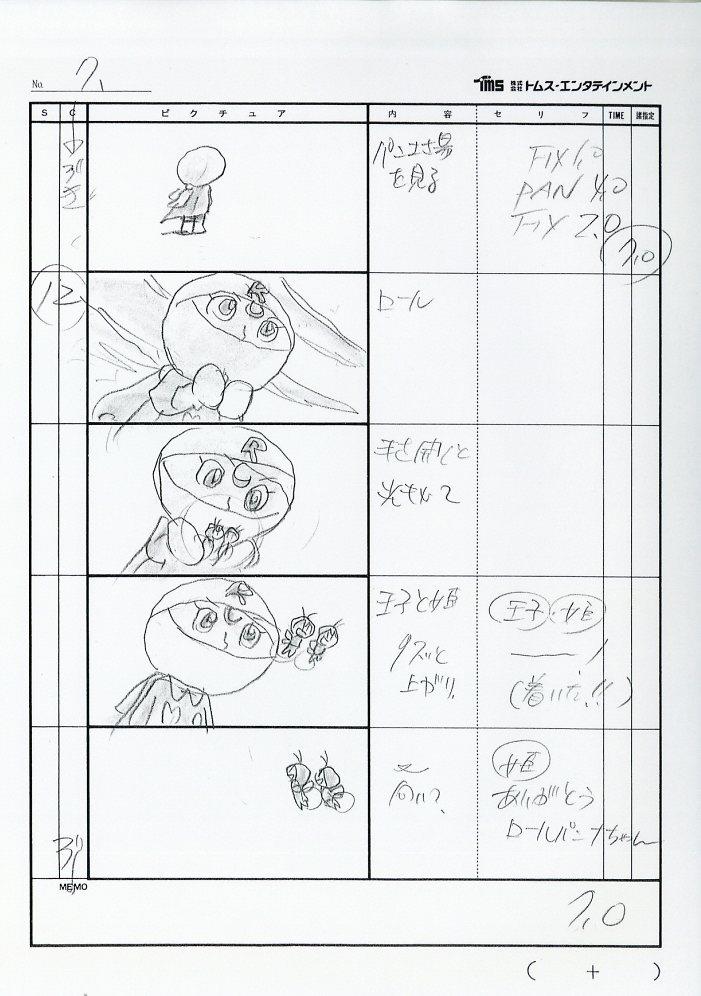 No. 7.
TMS 株式会社 トムス・エンタテインメント
S C ピクチュア 内容 セリフ TIME 諸指定
つづき
パン工場
を見る
FIX 1.0
PAN 4.0
FIX 2.0
7.0
12
ロール
手を開くと
王子と姫
スッと
上がり
王子・姫
(着いた!!)
姫
ありがとう
ロールパンナちゃん
MEMO
7.0
( + )